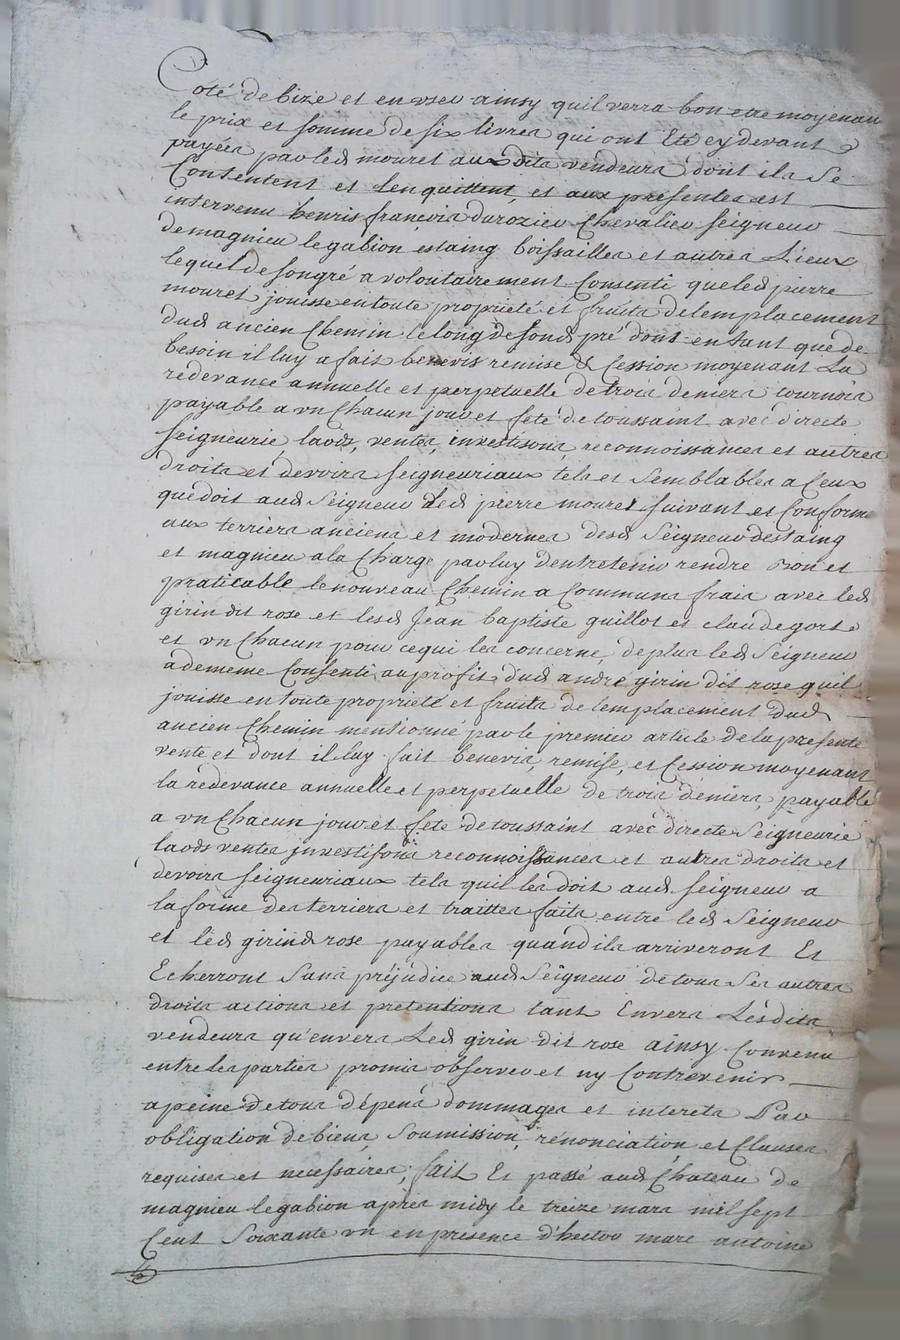 Coté de bize et en vseu ainsy quil verra bon etre moyenan
le prix et somme de six livres qui ont Eté cydevant
payéés par led mouret aux dits vendeurs dont ils se
Contentent et l'enquittent, et aux presentes est
intervenu henris françois durozieu Chevalieu seigneur
demagnieu legabion estaing boissailles et autres Lieux
lequel desongré a volontairement Consenti queled pierre
mouret jouisse entoute proprieté et fruits delemplacement
dud ancien Chemin le long desond pré dont entant quede
besoin il luy a fait benevis remise & Cession moyenant La
redevance annuelle et perpetuelle de trois deniers tournois
payable a vn Chacun jour et feté de toussaint avec directe
seigneurie, laods, ventes, investisons reconnoissances et autres
droits et devoirs seigneuriaux tels et semblables a Ceux
quedoit aud Seigneur led pierre mouret suivant et Conforme
aux terriers anciens et modernes desd Seigneur destaing
et magnieu ala Charge parluy dentretenir rendre bon et
praticable le nouveau Chemin a Communs frais avec led
girin dit rose et lesd Jean baptiste guillot et claude gorte
et vn Chacun pour cequi les concerne, deplus led Seigneur
ademême Consenti auprofit dud andré girin dit rose quil
jouisse entoute proprieté et fruits de lemplacement dud
ancien Chemin mentionné parle premier article dela presente
vente et dont il luy fait benevis, remise, et Cession moyenant
la redevance annuelle et perpetuelle de trois déniers payable
a vn Chacun jour et fete de toussaint avec directe Seigneurie
laods ventes jnvestisons reconnoissances et autres droits et
devoirs seigneuriaux tels quil les doit aud seigneur a
la forme des terriers et traittes faits entre led Seigneur
et led girind rose payables quand ils arriveront Et
Echerront Sans préjudice aud Seigneur detous ses autres
droits actions et pretentions tant Envers Lesdits
vendeurs qu'envers Led girin dit rose ainsy Convenu
entre les parties promis observer et ny Contrevenir
apeine detous dépens dommages et interets Par
obligation de biens, Soumission, rénonciation et Clauses
requises et necessaires, fait Et passé aud Chateau de
magnieu legabion après midy le treize mars mil sept
Cent Soixante vn en presence d'hector marc antoine